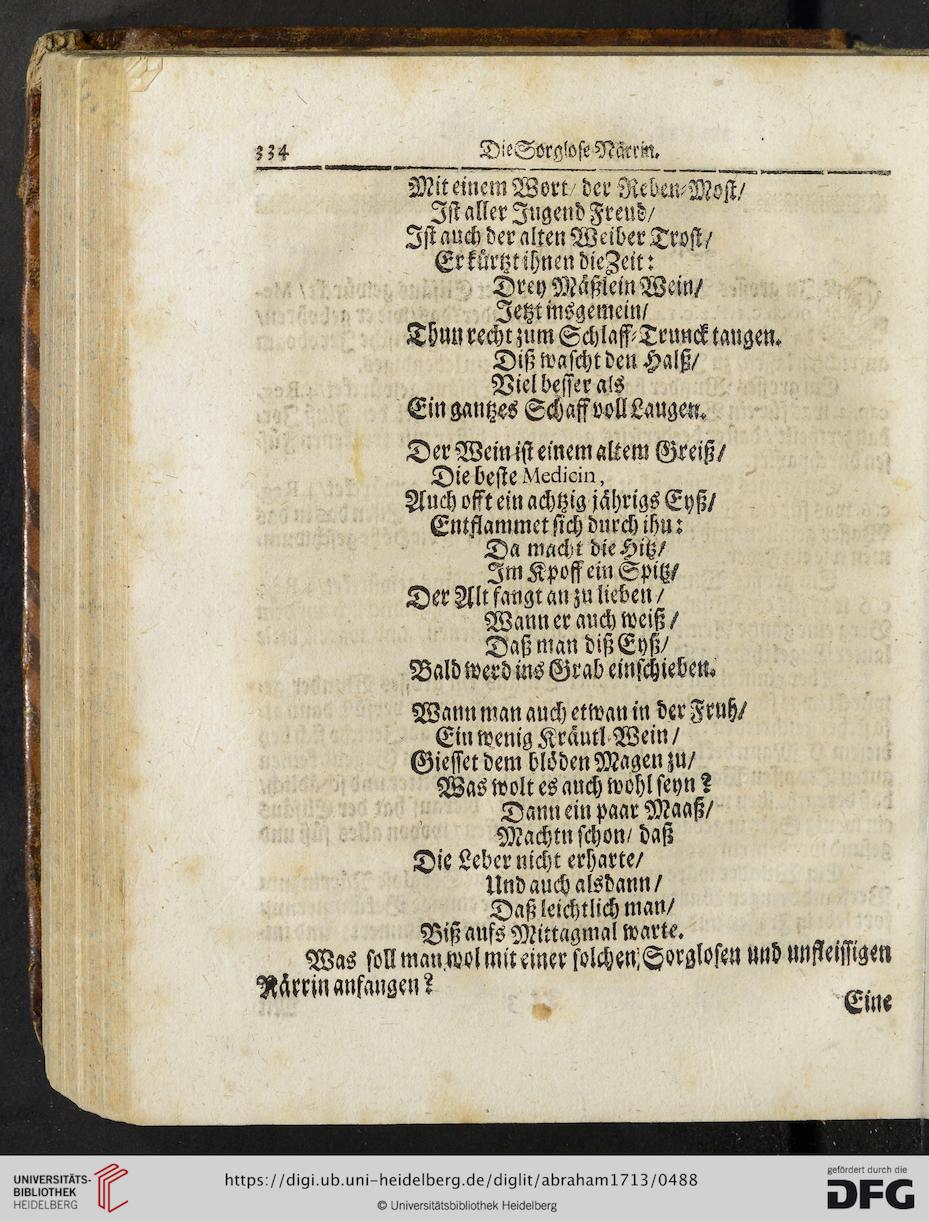 334 Die Sorglose Närrin.
Mit einem Wort/ der Reben-Most/
Ist aller Jugend Freud/
Ist auch der alten Weiber Trost/
Er kürtzt ihnen die Zeit:
Drey Mäßlein Wein/
Jetzt insgemein/
Thun recht zum Schlaff-Trunck taugen.
Diß wascht den Halß/
Viel besser als
Ein gantzes Schaff voll Laugen.
Der Wein ist einem altem Greiß/
Die beste Medicin,
Auch offt ein achtzig jährigs Eyß/
Entflammet sich durch ihn:
Da macht die Hitz/
Im Kpoff ein Spitz/
Der Alt fangt an zu lieben/
Wann er auch weiß/
Daß man diß Eyß/
Bald werd ins Grab einschieben.
Wann man auch etwan in der Fruh/
Ein wenig Kräutl-Wein/
Giesset dem blöden Magen zu/
Was wolt es auch wohl seyn?
Dann ein paar Maaß/
Machtn schon/ daß
Die Leber nicht erharte/
Und auch alsdann/
Daß leichtlich man/
Biß aufs Mittagmal warte.
Was soll man wol mit einer solchen Sorglosen und unfleissigen
Närrin anfangen?
Eine
UNIVERSITÄTS-
BIBLIOTHEK
HEIDELBERG
https://digi.ub.uni-heidelberg.de/diglit/abraham1713/0488
© Universitätsbibliothek Heidelberg
gefördert durch die
DFG